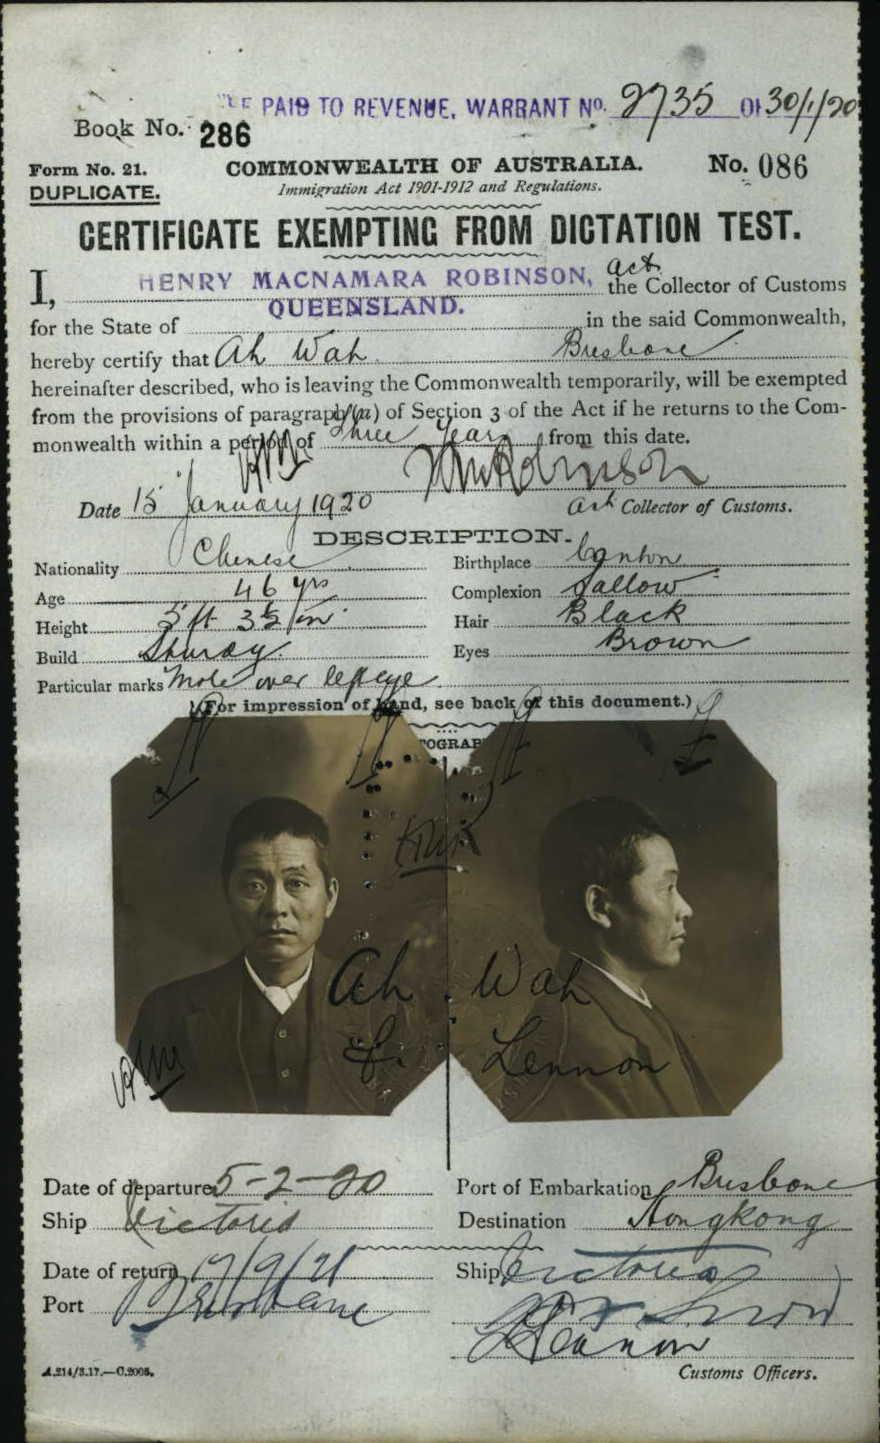 FEE PAID TO REVENUE, WARRANT No. 2735 OF 30/1/20
Book No. 286
Form No. 21. COMMONWEALTH OF AUSTRALIA. No. 086
DUPLICATE. Immigration Act 1901-1912 and Regulations.
CERTIFICATE EXEMPTING FROM DICTATION TEST.
I, HENRY MACNAMARA ROBINSON, act. the Collector of Customs
for the State of QUEENSLAND. in the said Commonwealth,
hereby certify that Ah Wah Brisbane
hereinafter described, who is leaving the Commonwealth temporarily, will be exempted
from the provisions of paragraph (a) of Section 3 of the Act if he returns to the Com-
monwealth within a period of Three Years from this date.
HMRobinson
Date 15 January 1920 Act Collector of Customs.
DESCRIPTION.
Nationality Chinese Birthplace Canton
Age 46 yrs Complexion Sallow
Height 5 ft 3½ in Hair Black
Build Sturdy Eyes Brown
Particular marks Mole over left eye
(For impression of hand, see back of this document.)
Ah Wah
Lennon
Date of departure 5-2-20 Port of Embarkation Brisbane
Ship Victoria Destination Hongkong
Date of return 17/9/21 Ship Victoria
Port Brisbane
A.214/3.17.—C.2005. Customs Officers.